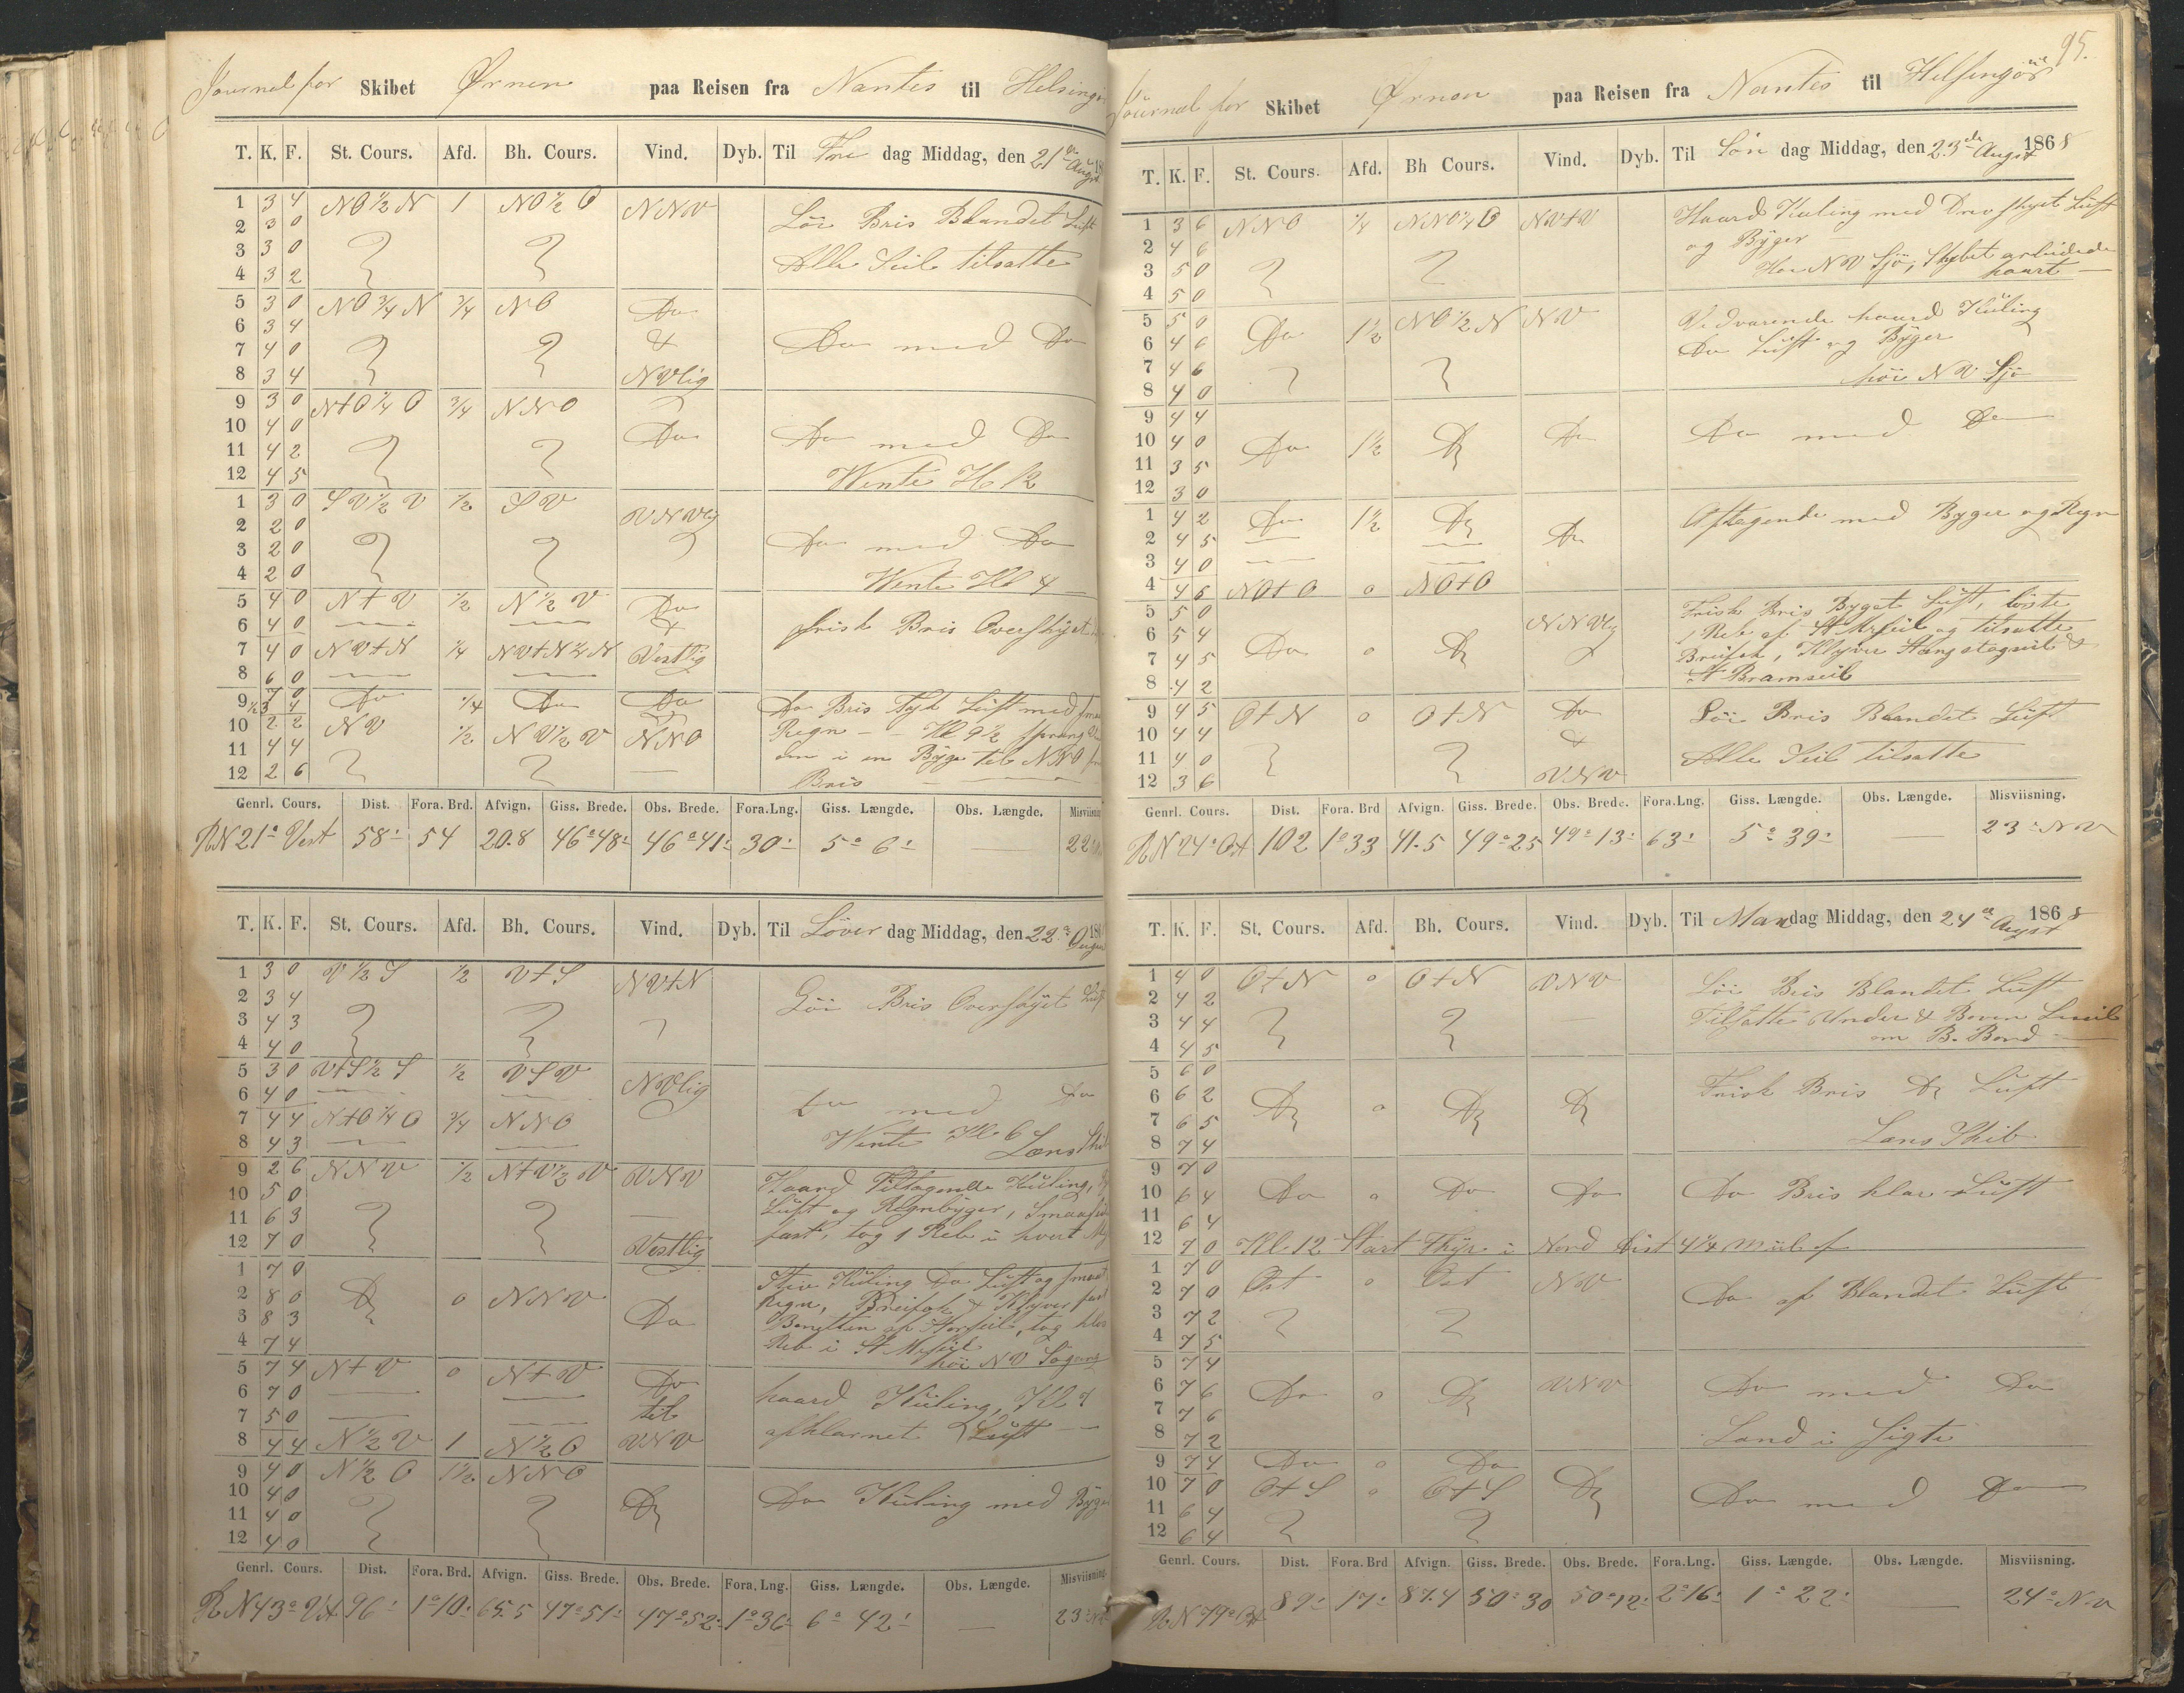 Journal for Skibet Ørnen paa Reisen fra Nantes til Helsingør
T. K. F. St. Cours. Afd. Bh. Cours. Vind. Dyb. Til Fre dag Middag, den 21 Augst
1 3 4 NO½N 1 NO½O NNV Löi Bris Blandet Luft
2 3 0
3 3 0 Alle Seil tilsatte
4 3 2
5 3 0 NO¾N ¾ NO Do
6 3 4 &
7 4 0 Do med Do
8 3 4 NVlig
9 3 0 N+O¼O ¾ NNO
10 4 0 Do Do med Do
11 4 2
12 4 5 Wente Kl 12
1 3 0 SV½V ½ SV VNVlig
2 2 0
3 2 0 Do med Do
4 2 0 Wente Kl 4
5 4 0 N+V ½ N½V Do
6 4 0 & frisk Bris Overskyet
7 4 0 NV+N ¼ NV+N¼N Vestlig
8 6 0
9 7 0 Do ¼ Do Do Do Bris Tyk Luft med smaa
½ 3 4
10 2 2 NV ½ NV½V NNO Regn - - Kl 9½ sprang
11 4 4 om i en Byge til NNO
12 2 6 Bris
Genrl. Cours. Dist. Fora. Brd. Afvign. Giss. Brede. Obs. Brede. Fora.Lng. Giss. Længde. Obs. Længde. Misviisning
RN 21° Vest 58' 54 20.8 46°48' 46°41' 30' 5° 6' — 22°
T. K. F. St. Cours. Afd. Bh. Cours. Vind. Dyb. Til Löver dag Middag, den 22 Augst
1 3 0 V½S ½ V+S NV+N
2 3 4 Löi Bris Overskyet Luft
3 4 3
4 4 0
5 3 0 V+S½S ½ VSV NVlig
6 4 0 Do med Do
7 4 4 N+O¼O ¾ NNO Wente Kl 6
8 4 3 Læns Skib
9 2 6 NNV ½ N+V½V VNV Haard Tiltagende Kuling,
10 5 0 Luft og Regnbyger, Smaaseil
11 6 3 fast, tog 1 Reb i hvert
12 7 0 Vestlig
1 7 0 Stiv Kuling Do Luft og smaat
2 8 0 Do 0 NNV Regn, Breifok & Klyver fast
3 8 3 Do Bonetten af Storseil, tog
4 7 4 Reb i St Mrseil
høi NV Søgang
5 7 4 N+V 0 N+V Do
6 7 0 til haard Kuling, Kl 7
7 5 0
8 4 4 N½V 1 N½O VNV afklarnet Luft
9 4 0 N½O 1½ NNO
10 4 0 Do Do Kuling med Byger
11 4 0
12 4 0
Genrl. Cours. Dist. Fora. Brd. Afvign. Giss. Brede. Obs. Brede. Fora. Lng. Giss. Længde. Obs. Længde. Misviisning.
RN 43° Vst 96' 1°10' 65.5 47°51' 47°52' 1°36' 6° 42' — 23°
95.
Journal for Skibet Ørnen paa Reisen fra Nantes til Helsingör
T. K. F. St. Cours. Afd. Bh Cours. Vind. Dyb. Til Sön dag Middag, den 23de Augst 1868
1 3 6 NNO ¼ NNO¼O NV+V Haard Kuling med Drevskyet Luft
2 4 6 og Byger
3 5 0 Høi NV Sjö, Skibet arbeidede
4 5 0 haart
5 5 0 Do 1½ NO½N NV Vedvarende haard Kuling
6 4 6 Do Luft og Byger
7 4 6
8 4 0 høi NV Sjö
9 4 4
10 4 0 Do 1½ Do Do Do med Do
11 3 5
12 3 0
1 4 2 Do 1½ Do Do Aftagende med Byger og Regn
2 4 5
3 4 0
4 4 6 NO+O 0 NO+O
5 5 0 NNVlig Frisk Bris Byget Luft, löste
6 5 4 1 Reb af St Mrseil og tilsatte
7 4 5 Do 0 Do Breifok, Klyver Stangstagseil &
8 4 2 St Bramseil
9 4 5 O+N 0 O+N Do Löi Bris Blandet Luft
10 4 4 &
11 4 0 Alle Seil tilsatte
12 3 6 VNV
Genrl. Cours. Dist. Fora. Brd Afvign. Giss. Brede. Obs. Brede. Fora.Lng. Giss. Længde. Obs. Længde. Misviisning.
RN 24° Ost 102 1°33 41.5 49°25 49°13' 63' 5° 39' — 23° NV
T. K. F. St. Cours. Afd. Bh. Cours. Vind. Dyb. Til Man dag Middag, den 24de Augst 1868
1 4 0 O+N 0 O+N VNV Löi Bris Blandet Luft
2 4 2 Tilsatte Under & Boven Læseil
3 4 4 om B. Bord
4 4 5
5 6 0 Frisk Bris Do Luft
6 6 2 Do 0 Do Do
7 6 5
8 7 4 Læns Skib
9 7 0
10 6 4 Do 0 Do Do Do Bris klar Luft
11 6 4
12 7 0 Kl. 12 Start Fyr i Nord Dist 4¼ Miil af
1 7 0 Ost 0 Ost NV
2 7 0 Do af Blandet Luft
3 7 2
4 7 5
5 7 4
6 7 6 Do 0 Do VNV Do med Do
7 7 6
8 7 2 Land i Sigte
9 7 4 Do 0 Do
10 7 0 O+S 0 O+S Do Do med Do
11 6 4
12 6 4
Genrl. Cours. Dist. Fora. Brd Afvign. Giss. Brede. Obs. Brede. Fora.Lng. Giss. Længde. Obs. Længde. Misviisning.
RN 79° Ost 89' 17' 87.4 50°30 50°12' 2°16' 1° 22' — 24° NV